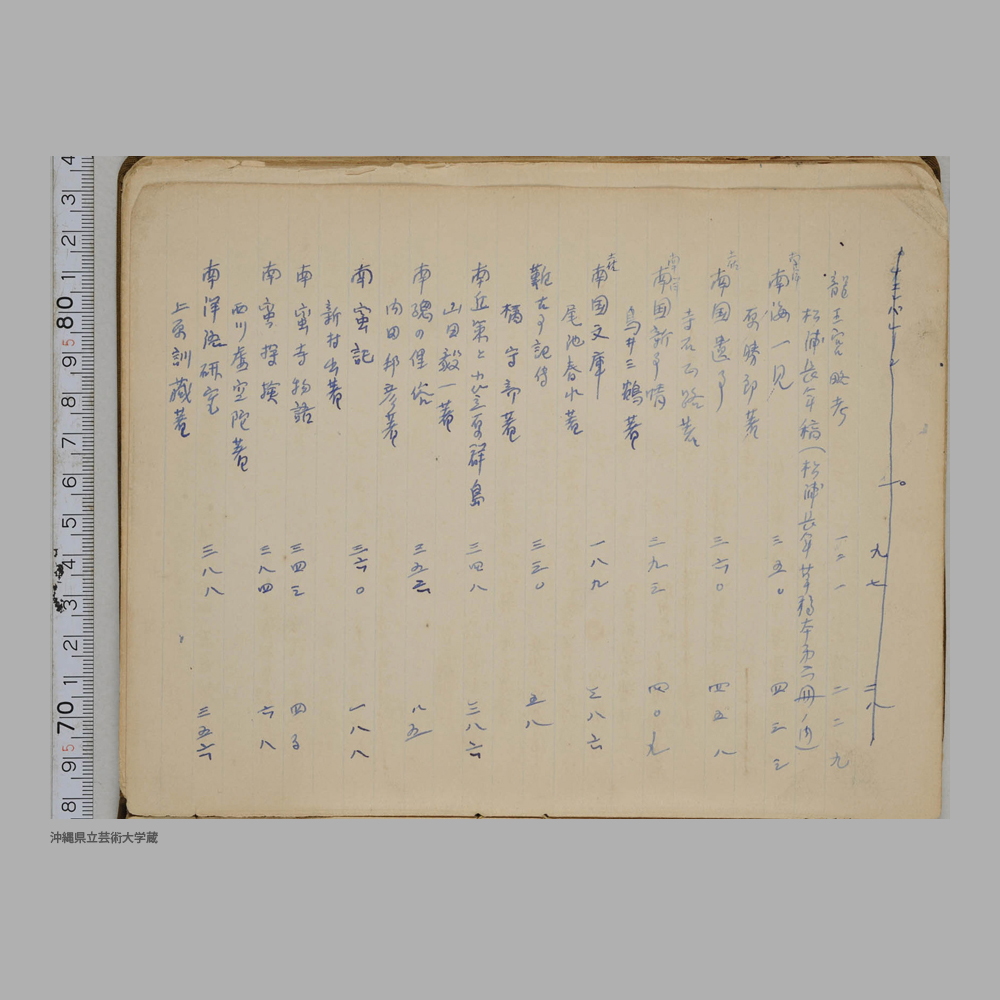 九七 三八
龍王宮略考 一二一 二二九
松浦長年稿(松浦長年草稿本第六冊ノ内)
南海一見 三五〇 四三三
原勝郎著
南国遺事 三六〇 四五八
寺石正路著
南国新事情 三九三 四〇九
鳥井三鶴著
南国文庫 一八九 三八六
尾池春水著
難古事記伝 三三〇 五八
橘守部著
南丘業と小笠原群島 三四八 三八六
山田毅一著
南総の俚俗 三五三 八五
内田邦彦著
南蛮記 三六〇 一八八
新村出著
南蛮寺物語 三四三
南蛮探検 三八四 六八
西川虚空陀著
南洋語研究 三八八 三五六
上原訓蔵著
沖縄県立芸術大学蔵